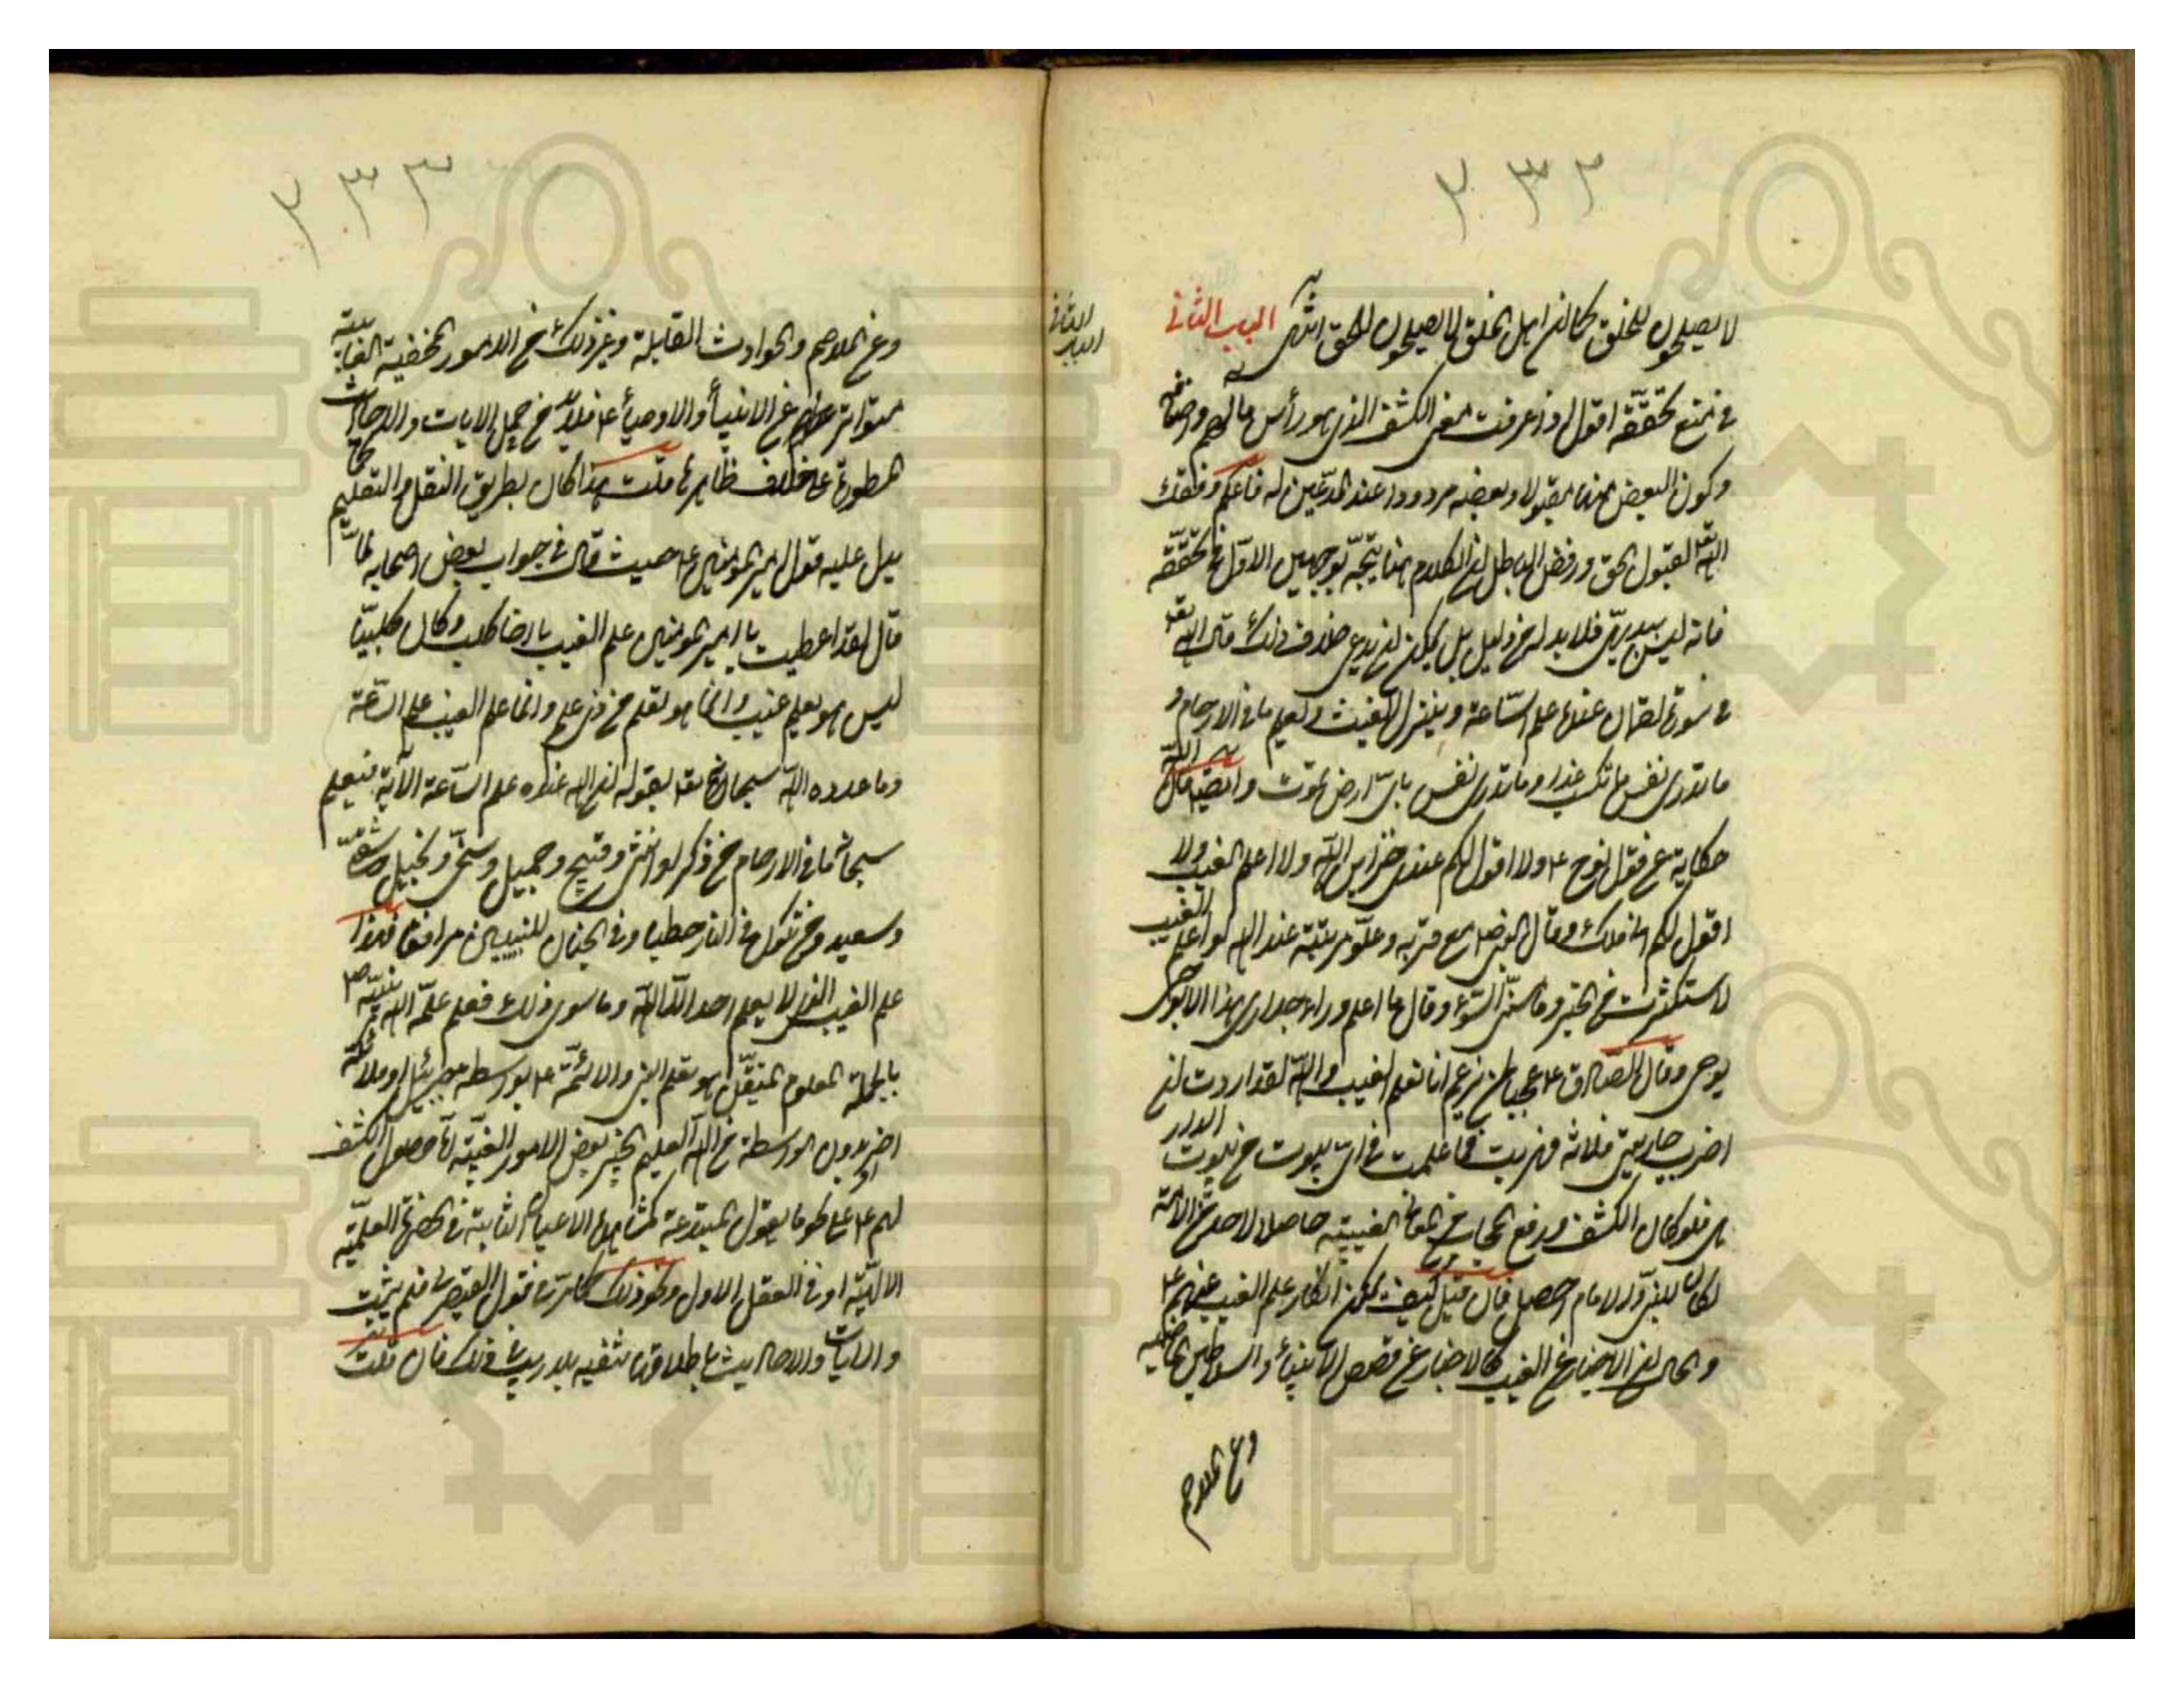 ٢٣٢
لا يصلحون للخلق كما ان اهل الخلق لا يصلحون للحق انتهى الباب الثانى
الباب الثانى
فى تحققه اقول اذ عرفت معنى الكشف الذى هو رأس مالهم
وكون البعض منها مقبولا وبعضه مردودا عند المدعين له فاعلم وفقك
الله لقبول الحق ورفض الباطل ان الكلام هنا يتجه بوجهين الاول فى تحققه
فانه ليس ببديهى فلا بد له من دليل بل يمكن ان يدعى خلاف ذلك قال الله تعه
فى سورة لقمان عنده علم الساعة وينزل الغيث ويعلم ما فى الارحام و
ما تدرى نفس ما تكسب غدا وما تدرى نفس باى ارض تموت وايضا قال الله
حكاية عن قول نوح ع ولا اقول لكم عندى خزاين الله ولا اعلم الغيب ولا
اقول لكم انى ملك وقال النبى ص مع قربه وعلو مرتبته عند الله لو اعلم الغيب
لاستكثرت من الخير وما مسنى السوء وقال ما اعلم وراء جدارى هذا الا بوحى
يوحى وقال الصادق ع عجبا لمن يزعم انا نعلم الغيب والله لقد اردت ان
اضرب جاريتى فلانة فهربت فما علمت فى اى بيوت من بيوت الدار
هى فلو كان الكشف ورفع الحجاب من المعانى الغيبيه حاصلا لاحد من الائمة
لكان للنبى والامام احصل فان قيل كيف يمكن انكار علم الغيب عنهم ع
والحال ان الاخبار عن الغيب كالاخبار عن قصص الانبياء والسلاطين الماضيه
وعن الملاحم
٢٣٣
وعن الملاحم والحوادث القابلة وغير ذلك من الامور الخفية الغايبة
متواتر عنهم عن الانبياء والاوصياء ع فلا بد من حمل الايات والاحاديث
المسطورة على خلاف ظاهرها قلت هذا كان بطريق النقل والتعليم كما
يدل عليه قول امير المومنين ع حيث قال فى جواب بعض اصحابه لما
قال لقد اعطيت يا امير المومنين علم الغيب يا اخا كلب وكان كلبيا
ليس هو بعلم غيب وانما هو تعلم من ذى علم وانما علم الغيب علم الساعة
وما عدده الله سبحانه بقوله ان الله عنده علم الساعة الاية فيعلم
سبحانه ما فى الارحام من ذكر او انثى وقبيح وجميل وسخى وبخيل وشقى
وسعيد ومن يكون فى النار حطبا وفى الجنان للنبيين مرافقا فهذا
علم الغيب الذى لا يعلم احد الا الله وما سوى ذلك فعلم علمه الله نبيه ص
بالجملة المعلوم المتيقن هو تعلم النبى والائمة ع بواسطة جبرئيل او ملائكة
اخر او بدون الواسطة من الله العليم الخبير بعض الامور الغيبية لا حصول الكشف
لهم ع على نحو ما يقول المبتدعة كمشاهدة الاعيان الثابتة فى الحضرة العلمية
الالهية او فى العقل الاول ونحو ذلك كما مر فى قول القيصرى فلم يثبت
والايات والاحاديث باطلاقها تنفيه بلا ريب فى ذلك فان قلت